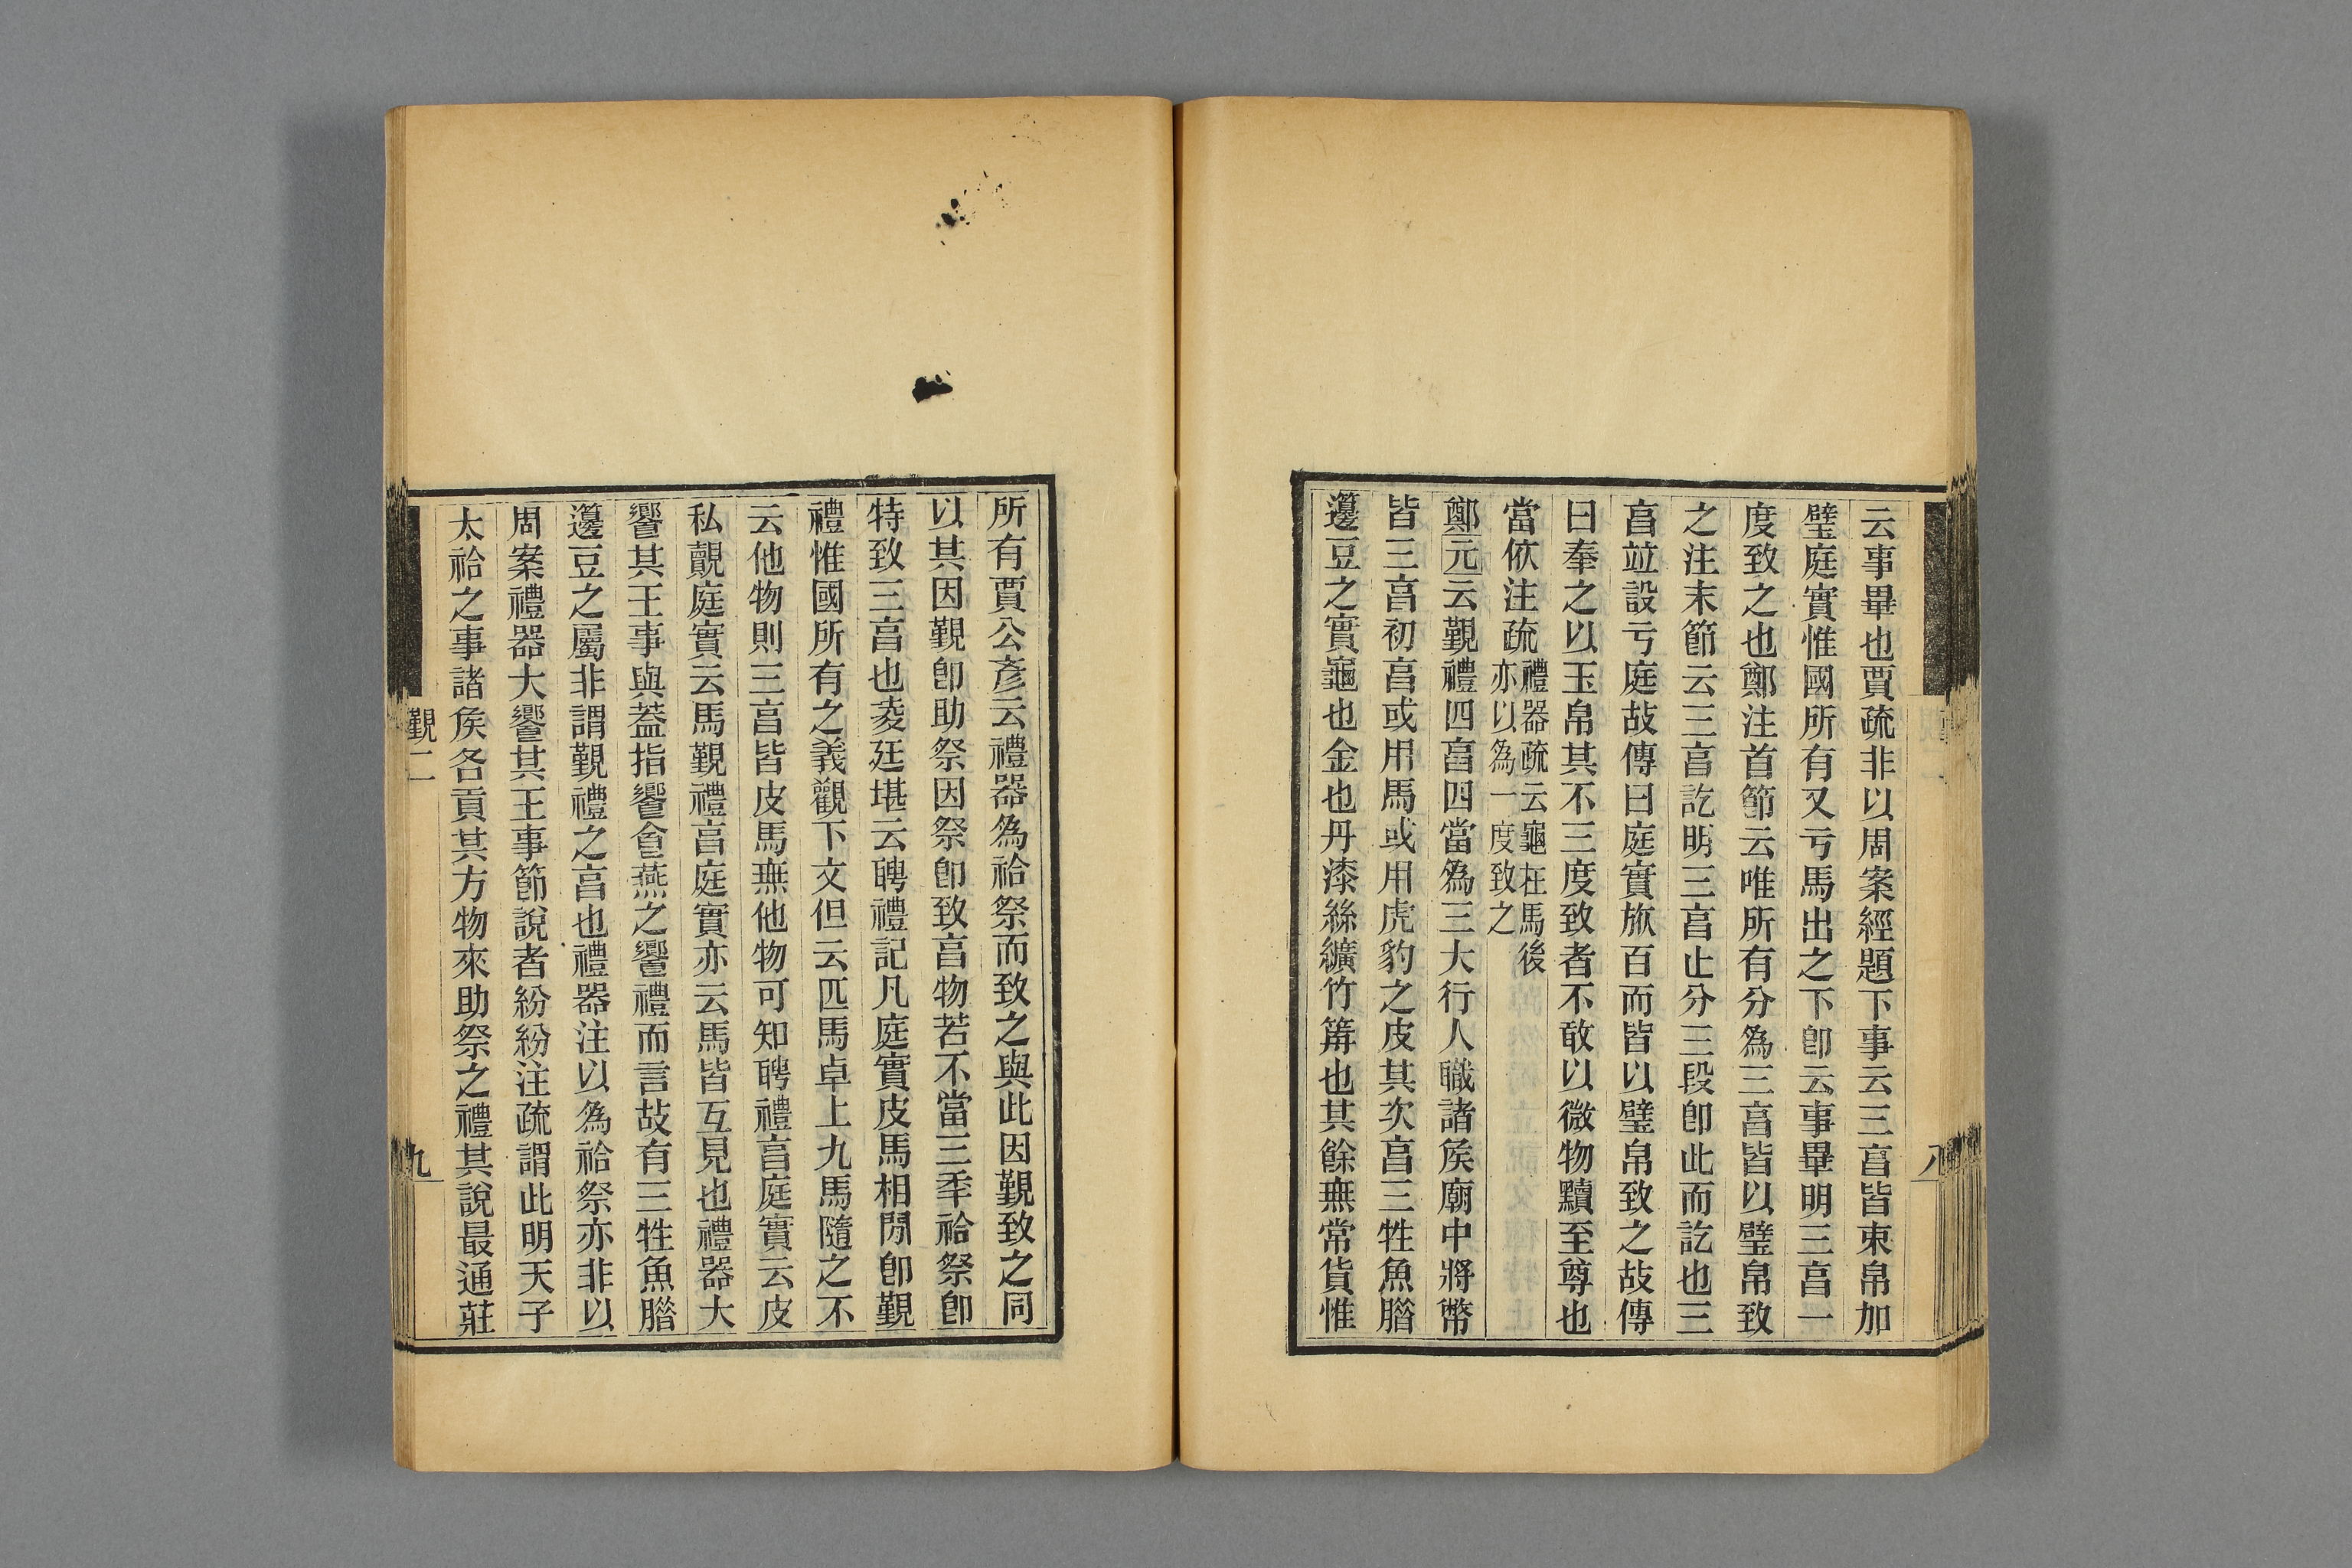 云事畢也賈疏非以周案經題下事云三亯皆束帛加
璧庭實惟國所有又亏馬出之下卽云事畢明三亯一
度致之也鄭注首節云唯所有分爲三亯皆以璧帛致
之注末節云三亯訖明三亯止分三段卽此而訖也三
亯竝設亏庭故傳曰庭實旅百而皆以璧帛致之故傳
曰奉之以玉帛其不三度致者不敢以微物黷至尊也
當依注疏禮器疏云龜在馬後
亦以爲一度致之
鄭元云覲禮四亯四當爲三大行人職諸矦廟中將幣
皆三亯初亯或用馬或用虎豹之皮其次亯三牲魚腊
籩豆之實龜也金也丹漆絲纊竹箭也其餘無常貨惟
八
所有賈公彥云禮器爲祫祭而致之與此因覲致之同
以其因覲卽助祭因祭卽致亯物若不當三秊祫祭卽
特致三亯也夌廷堪云聘禮記凡庭實皮馬相閒卽覲
禮惟國所有之義觀下文但云匹馬卓上九馬隨之不
云他物則三亯皆皮馬無他物可知聘禮亯庭實云皮
私覿庭實云馬覲禮亯庭實亦云馬皆互見也禮器大
饗其王事與葢指饗食燕之饗禮而言故有三牲魚腊
籩豆之屬非謂覲禮之亯也禮器注以爲祫祭亦非以
周案禮器大饗其王事節說者紛紛注疏謂此明天子
太祫之事諸矦各貢其方物來助祭之禮其說最通莊
覲二
九